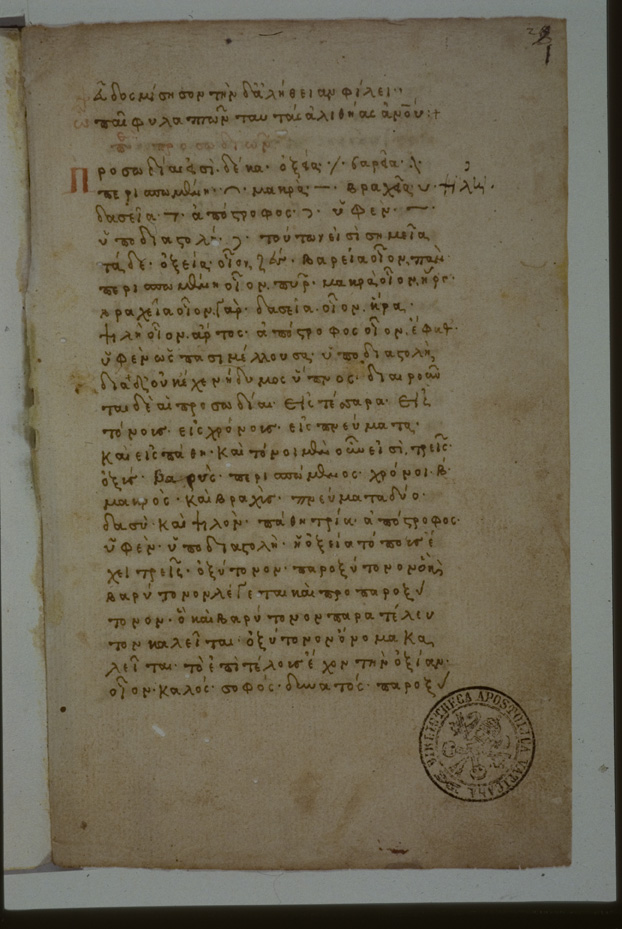 ψ ̈δος μίσησον τὴν δ ἀλήθειαν φίλει·
παμφυλάττων ταύτας ἀλιθείας ἄνου:+
περὶ προσωδιῶν
Προσωδίαι εἰσὶ δέκα· ὀξεῖα / βαρεῖα \
περισπωμένη ⁀ μακρὰ — βραχεῖα ᴗ ψιλὴ
δασεῖα ἀπόστροφος ὕφεν
ὑποδιαστολή· τούτων εἰσὶ σημεῖα
τάδε· ὀξεῖα οἷον βαρεῖα οἷον πὰν
περισπωμένη οἷον πῦρ· μακρὰ οἷον ἥρως
βραχεῖα οἷον γὰρ· δασεῖα οἷον ἥρα·
ψιλὴ οἷον ἄρτος· ἀπόστροφος οἷον ἔφη
ὕφεν ὡς πασιμέλλουσα· ὑποδιαστολὴ
δια δίου κέχεν ἥδυμος ὕπνος· διαιροῦν
ται δὲ αἱ προσωδίαι εἰς τέσσαρα· εἰς
τόνους· εἰς χρόνους· εἰς πνεύματα·
καὶ εἰς πάθη· καὶ τόνοι μὲν οὖν εἰσὶ τρεῖς·
ὀξὺς· βαρύς· περισπώμενος· χρόνοι β
μακρὸς· καὶ βραχὺς· πνεύματα δύο·
δασὺ· καὶ ψιλὸν· πάθη τρία· ἀπόστροφος·
ὕφεν· ὑποδιαστολὴ· ἡ ὀξεῖα τόπους ἔ
χει τρεῖς· ὀξύτονον· παροξύτονον
βαρύτονον λέγεται καὶ προπαροξύ
τονον· ὃ καὶ βαρύτονον παρατέλευ
τον καλεῖται· ὀξύτονον ὄνομα κα
λεῖται· τὸ ἐπὶ τέλους ἔχον τὴν ὀξίαν·
οἷον· καλός· σοφός· δυνατός· παροξύ
BIBLIOTHECA APOSTOLICA VATICANA